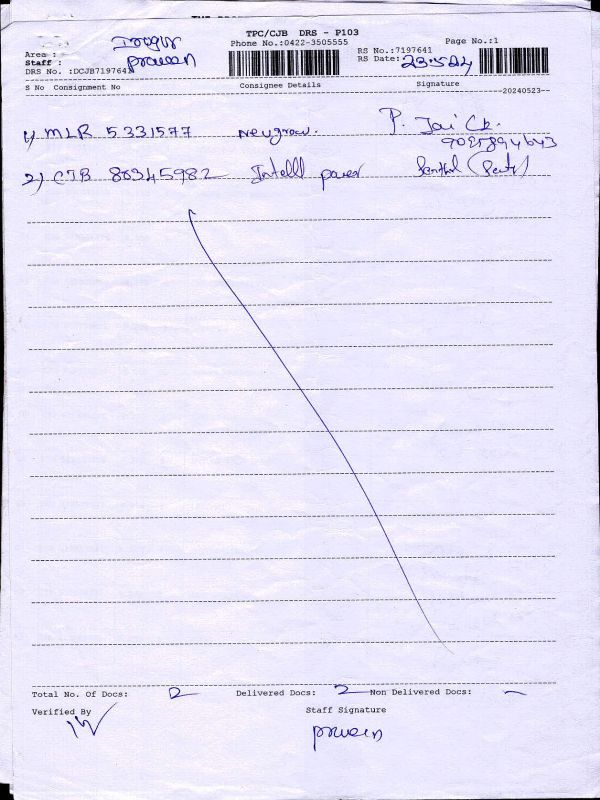 TPC/CJB DRS - P103
Phone No.:0422-3505555 Page No.:1
Area :
Staff : praveen
RS No.:7197641
RS Date: 23.5.24
DRS No. :DCJB7197641
S No Consignment No Consignee Details Signature
20240523--
1) MLR 5331577 Neugrow. P. Jai Ck.
2) CJB 80345982 Intell power
Total No. Of Docs: 2 Delivered Docs: 2 Non Delivered Docs: -
Verified By Staff Signature
praveen